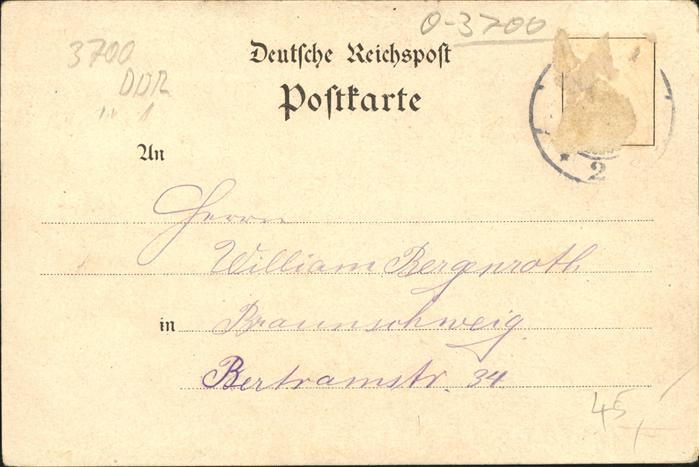 O-3700
3700
DDR
Deutsche Reichspost
Postkarte
An
2
Herrn
William Bergenroth
in Braunschweig
Bertramstr. 34
45,-